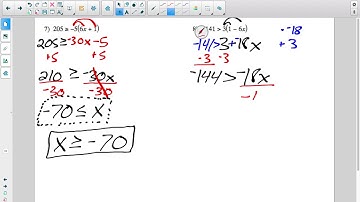 7) 205 ≥ -5(6x + 1)
205 ≥ -30x - 5
+5 +5
210 ≥ -30x
-30 -30
-70 ≤ x
x ≥ -70
41 > 3(1 - 6x)
-18
+3
-141 > 3 + -18x
-3 -3
-144 > -18x
-1